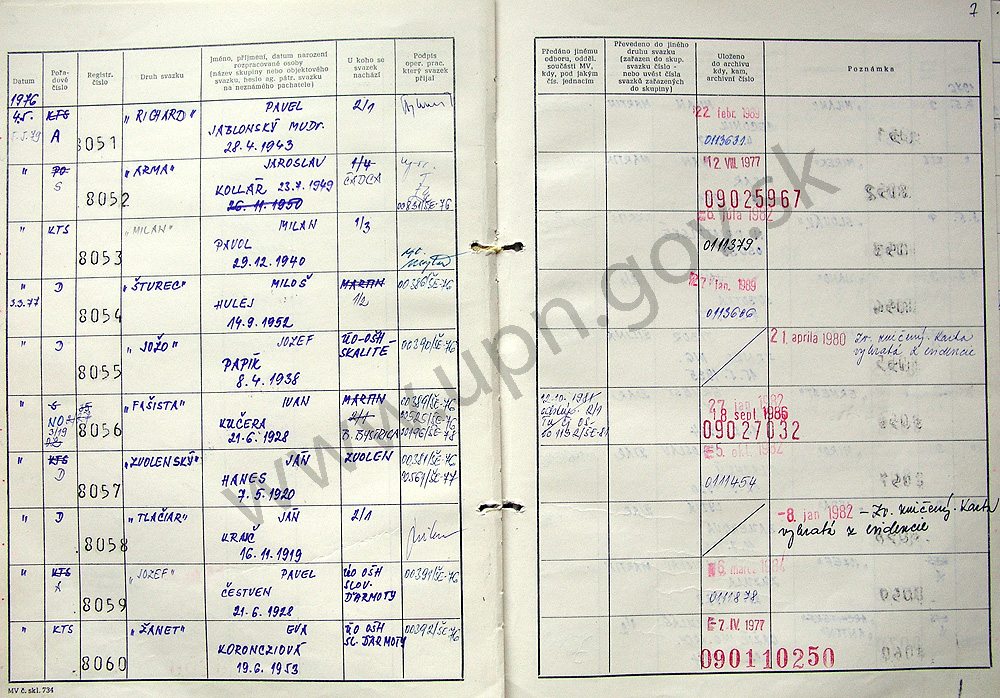 7
Datum
Pořadové číslo
Registr. číslo
Druh svazku
Jméno, příjmení, datum narození rozpracované osoby (název skupiny nebo objektového svazku, heslo ag. pátr. svazku na neznámého pachatele)
U koho se svazek nachází
Podpis oper. prac. který svazek přijal
Předáno jinému odboru, odděl. součásti MV, kdy, pod jakým čj. jednacím
Převedeno do jiného druhu svazku (zařazen do skup. svazku číslo - nebo uvést čísla svazků zařazených do skupiny)
Uloženo do archivu kdy, kam, archivní číslo
Poznámka
1976
4.5. KTS "RICHARD" PAVEL 2/1
5.5.79 A 8051 JABLONSKÝ MUDr.
28.4.1943
22 febr. 1989
0113631
" PO "ARMA" JAROSLAV 1/4
S 8052 KOLLÁR 23.7.1949 ČADCA
26.11.1950 00831/SE-76
12. VIII. 1977
09025967
" KTS "MILAN" MILAN 1/3
8053 PAVOL
29.12.1940
6. júla 1982
0111379
" D "ŠTUREC" MILOŠ MARTIN 00386/ŠE-76
3.3.77 8054 HULEJ 1/2
14.9.1952
27 jan. 1989
0113606
" D "JOŽO" JOZEF ÚO-OŠH 00390/ŠE-76
8055 PAPÍK SKALITÉ
8.4.1938
21 apríla 1980 Zv. zničený. Karta
vybratá z evidencie
" "FAŠISTA" IVAN MARTIN
NO 8056 KUČERA 2/1
21.6.1928 B. BYSTRICA
12.10.1981
27 jan. 1982
18 sept. 1986
09027032
" KTS "ZVOLENSKÝ" JÁN ZVOLEN 00381/ŠE-76
D 8057 HANES 00561/ŠE-77
7.5.1920
5. okt. 1982
0111454
" D "TLAČIAR" JÁN 2/1
8058 KRAJČ
16.11.1919
-8. jan 1982 - Zv. zničený. Karta
vybratá z evidencie
" KTS "JOZEF" PAVEL ÚO OŠH 00391/ŠE-76
A 8059 ČESTVEN SLOV.
21.6.1928 ĎARMOTY
6. marca 1984
0111878
" KTS "ŽANET" EVA ÚO OŠH 00392/ŠE-76
8060 KORONCZIOVÁ SL. ĎARMOTY
19.6.1953
7. IV. 1977
090110250
MV č. skl. 734
www.upn.gov.sk